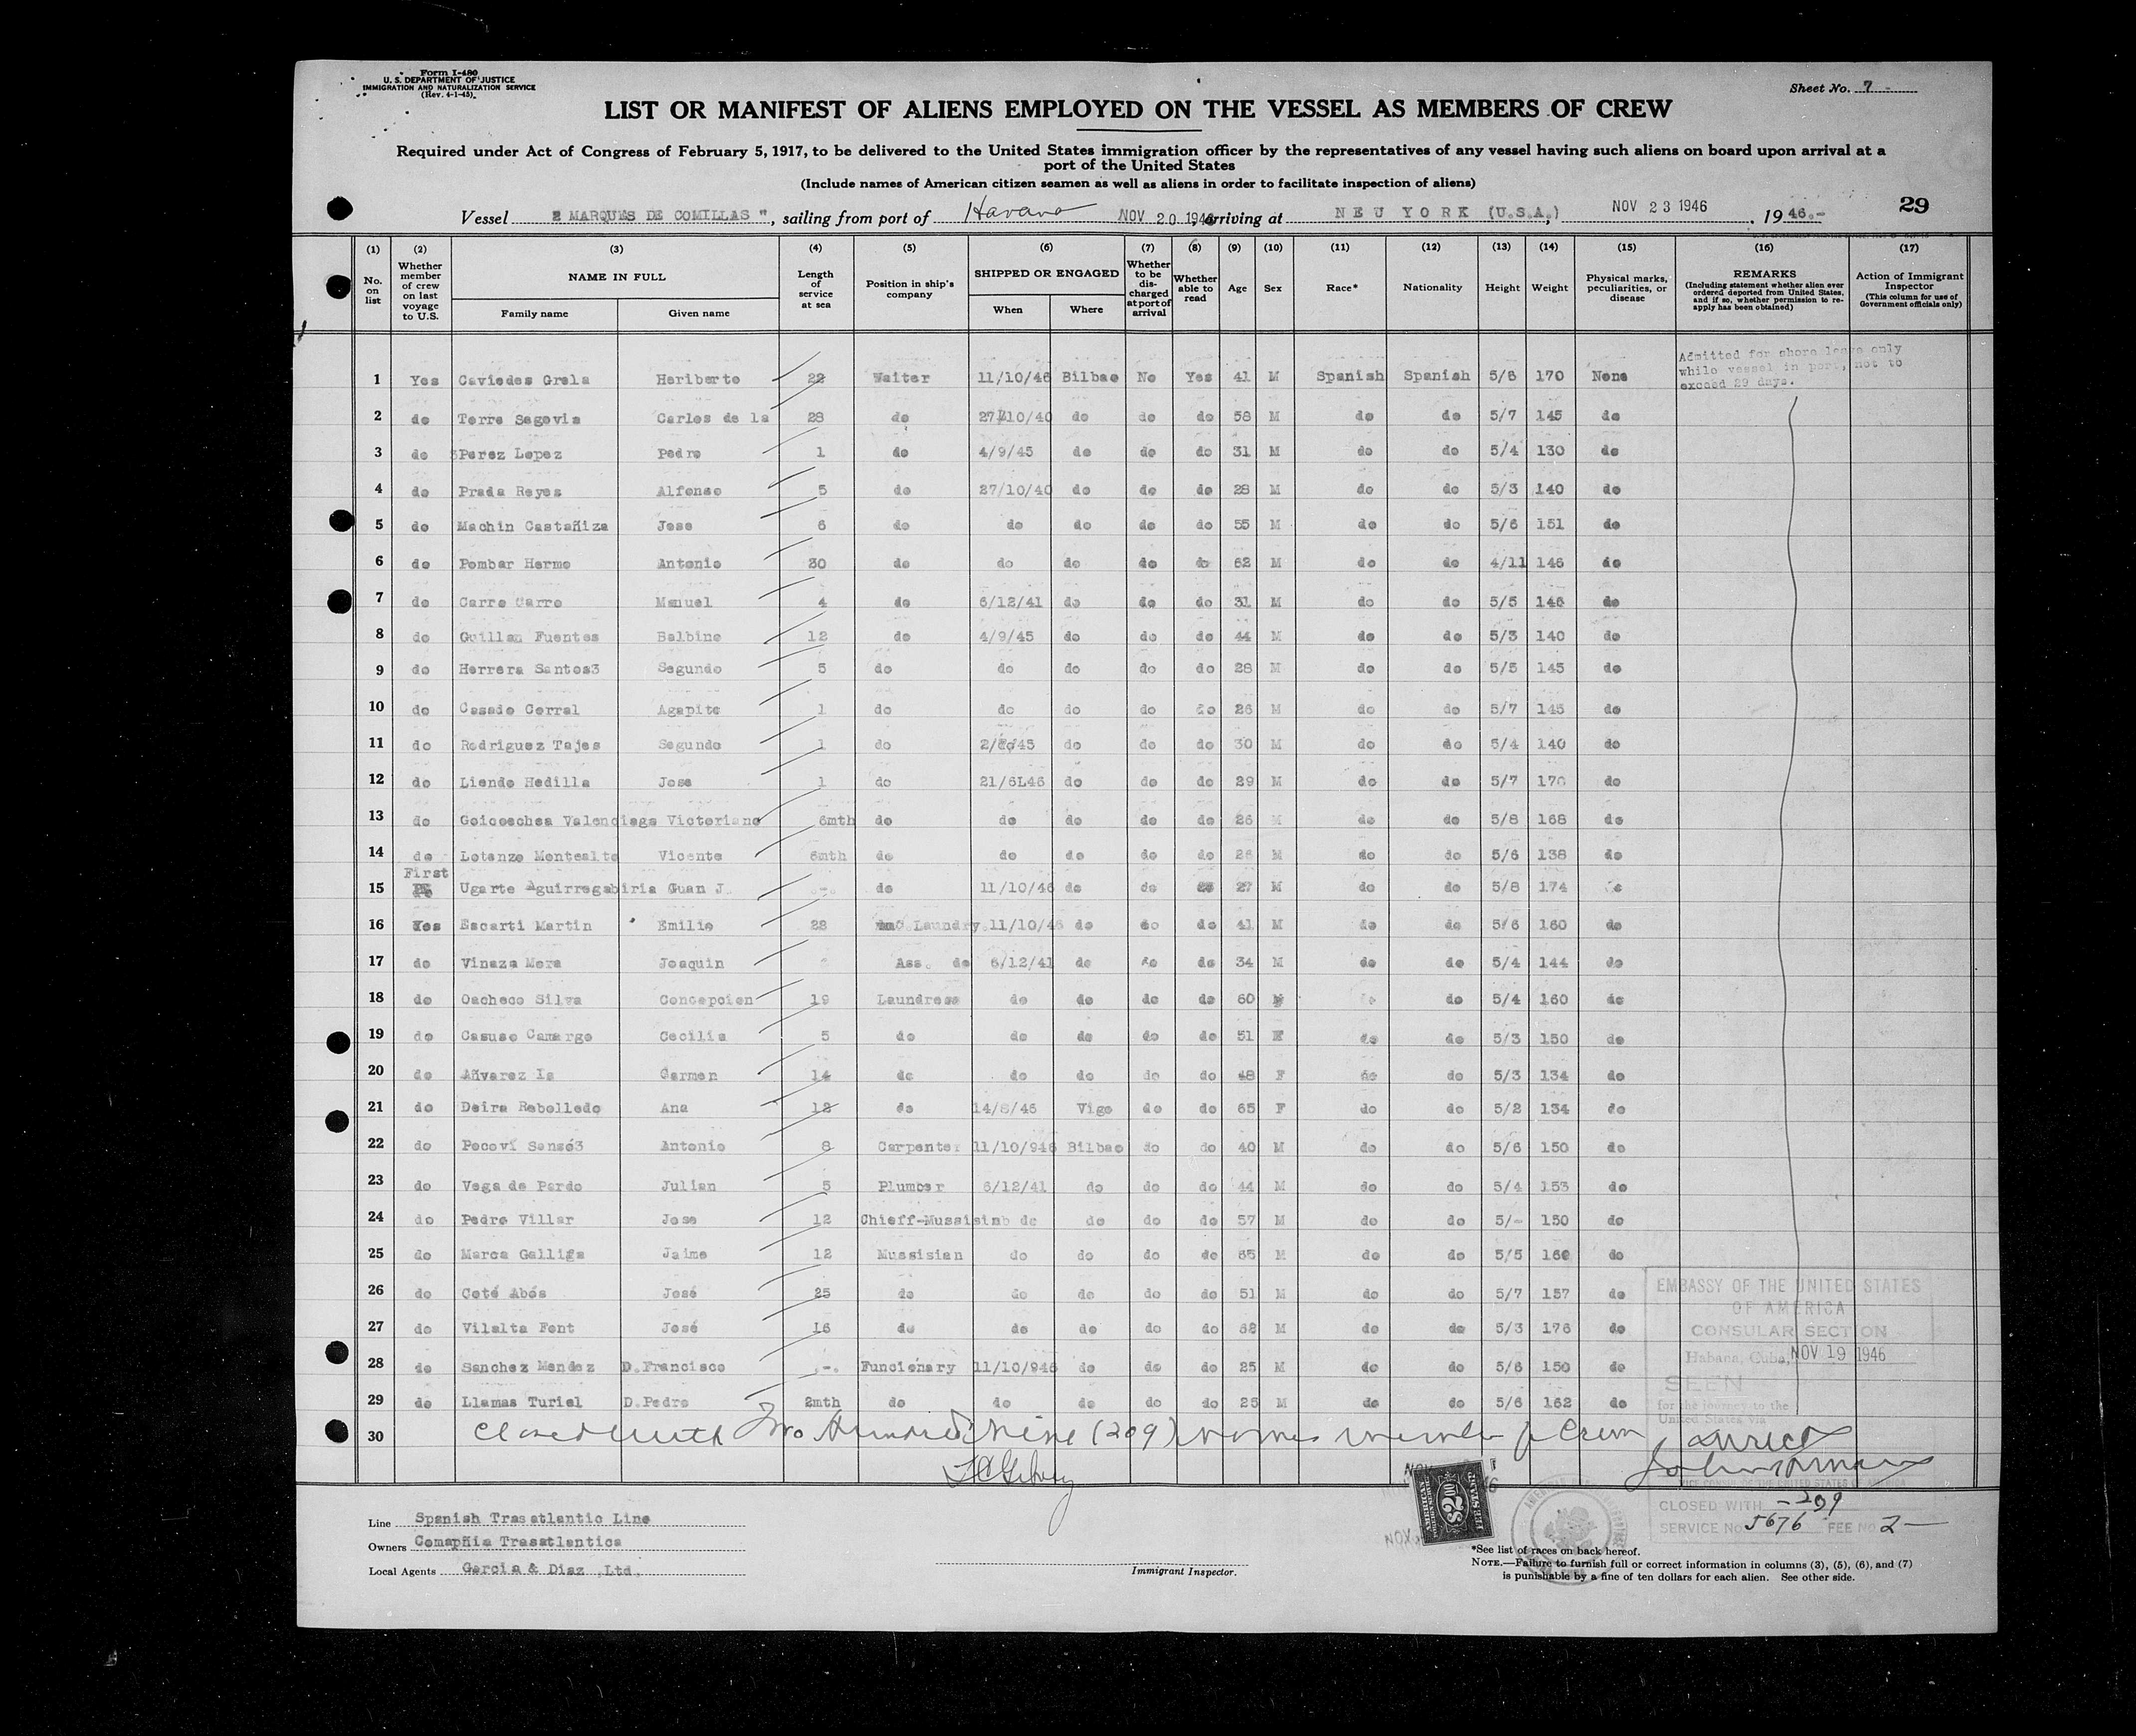 Form I-480
U. S. DEPARTMENT OF JUSTICE
IMMIGRATION AND NATURALIZATION SERVICE
(Rev. 4-1-45)
Sheet No. 7
LIST OR MANIFEST OF ALIENS EMPLOYED ON THE VESSEL AS MEMBERS OF CREW
Required under Act of Congress of February 5, 1917, to be delivered to the United States immigration officer by the representatives of any vessel having such aliens on board upon arrival at a
port of the United States
(Include names of American citizen seamen as well as aliens in order to facilitate inspection of aliens)
Vessel MARQUES DE COMILLAS ", sailing from port of Havana NOV 20 1946 arriving at NEU YORK (U.S.A.) NOV 23 1946, 1946.- 29
(1) (2) (3) (4) (5) (6) (7) (8) (9) (10) (11) (12) (13) (14) (15) (16) (17)
No. on list Whether member of crew on last voyage to U.S. NAME IN FULL Family name Given name Length of service at sea Position in ship's company SHIPPED OR ENGAGED When Where Whether to be discharged at port of arrival Whether able to read Age Sex Race* Nationality Height Weight Physical marks, peculiarities, or disease REMARKS (Including statement whether alien ever ordered deported from United States, and if so, whether permission to re-apply has been obtained) Action of Immigrant Inspector (This column for use of Government officials only)
Admitted for shore leave only
while vessel in port, not to
exceed 29 days.
1 Yes Caviedes Grela Heriberto 22 Waiter 11/10/46 Bilbao No Yes 41 M Spanish Spanish 5/8 170 None
2 do Torre Segovia Carlos de la 28 do 27/10/40 do do do 58 M do do 5/7 145 do
3 do Perez Lopez Pedro 1 do 4/9/45 do do do 31 M do do 5/4 130 do
4 do Prada Reyes Alfonso 5 do 27/10/40 do do do 28 M do do 5/3 140 do
5 do Machin Castañiza Jose 6 do do do do do 55 M do do 5/6 151 do
6 do Pombar Hermo Antonio 30 do do do do do 62 M do do 4/11 146 do
7 do Carro Carro Manuel 4 do 6/12/41 do do do 31 M do do 5/5 146 do
8 do Guillan Fuentes Balbino 12 do 4/9/45 do do do 44 M do do 5/3 140 do
9 do Herrera Santos3 Segundo 5 do do do do do 28 M do do 5/5 145 do
10 do Casado Corral Agapito 1 do do do do do 26 M do do 5/7 145 do
11 do Rodriguez Tajes Segundo 1 do do do do 30 M do do 5/4 140 do
12 do Liendo Hedilla Jose 1 do 21/6L46 do do do 29 M do do 5/7 170 do
13 do Goicoechea Valenciaga Victoriano 6mth do do do do do 26 M do do 5/8 168 do
14 do Lotenzo Montealto Vicente 6mth do do do do do 26 M do do 5/6 138 do
First
15 Ugarte Aguirregabiria Guan J. do 11/10/46 do do 27 M do do 5/8 174
16 Yes Escarti Martin Emilio 28 Laundry 11/10/46 do do do 41 M do do 5/6 160 do
17 do Vinaza Mora Joaquin Ass. do 6/12/41 do do do 34 M do do 5/4 144 do
18 do Oacheco Silva Concepcion 19 Laundress do do do do 60 do 5/4 160 do
19 do Casuso Camargo Cecilia 5 do do do do do 51 F do do 5/3 150 do
20 do Añvarez Is Carmen 14 do do do do do 48 F do do 5/3 134 do
21 do Deira Rebolledo Ana 12 do 14/8/46 Vigo do do 65 F do do 5/2 134 do
22 do Pocoví Sansó3 Antonio 8 Carpenter 11/10/946 Bilbao do do 40 M do do 5/6 150 do
23 do Vega de Pardo Julian 5 Plumber 6/12/41 do do do 44 M do do 5/4 153 do
24 do Pedro Villar Jose 12 Chieff-Mussisinb do do do do 57 M do do 5/- 150 do
25 do Marca Galliga Jaime 12 Mussisian do do do do 65 M do do 5/5 160 do
26 do Coté Abós José 25 do do do do do 51 M do do 5/7 157 do
27 do Vilalta Font José 16 do do do do do M do do 5/3 176 do
28 do Sanchez Mendez D.Francisco -. Funcionary 11/10/946 do do do 25 M do do 5/6 150 do
29 do Llamas Turiel D.Pedro 2mth do do do do do 25 M do do 5/6 162 do
30 Closed with Two Hundred Nine (209) names member of Crew
EMBASSY OF THE UNITED STATES
OF AMERICA
CONSULAR SECTION
Habana, Cuba, NOV 19 1946
SEEN
for the journey to the
United States via
CLOSED WITH -209
SERVICE No 5676 FEE No 2-
AMERICAN
$2.00
FEE STAMP
Line Spanish Trasatlantic Line
Owners Comapñia Trasatlantica
Local Agents Garcia & Diaz ,Ltd.
Immigrant Inspector.
*See list of races on back hereof.
NOTE.—Failure to furnish full or correct information in columns (3), (5), (6), and (7)
is punishable by a fine of ten dollars for each alien. See other side.